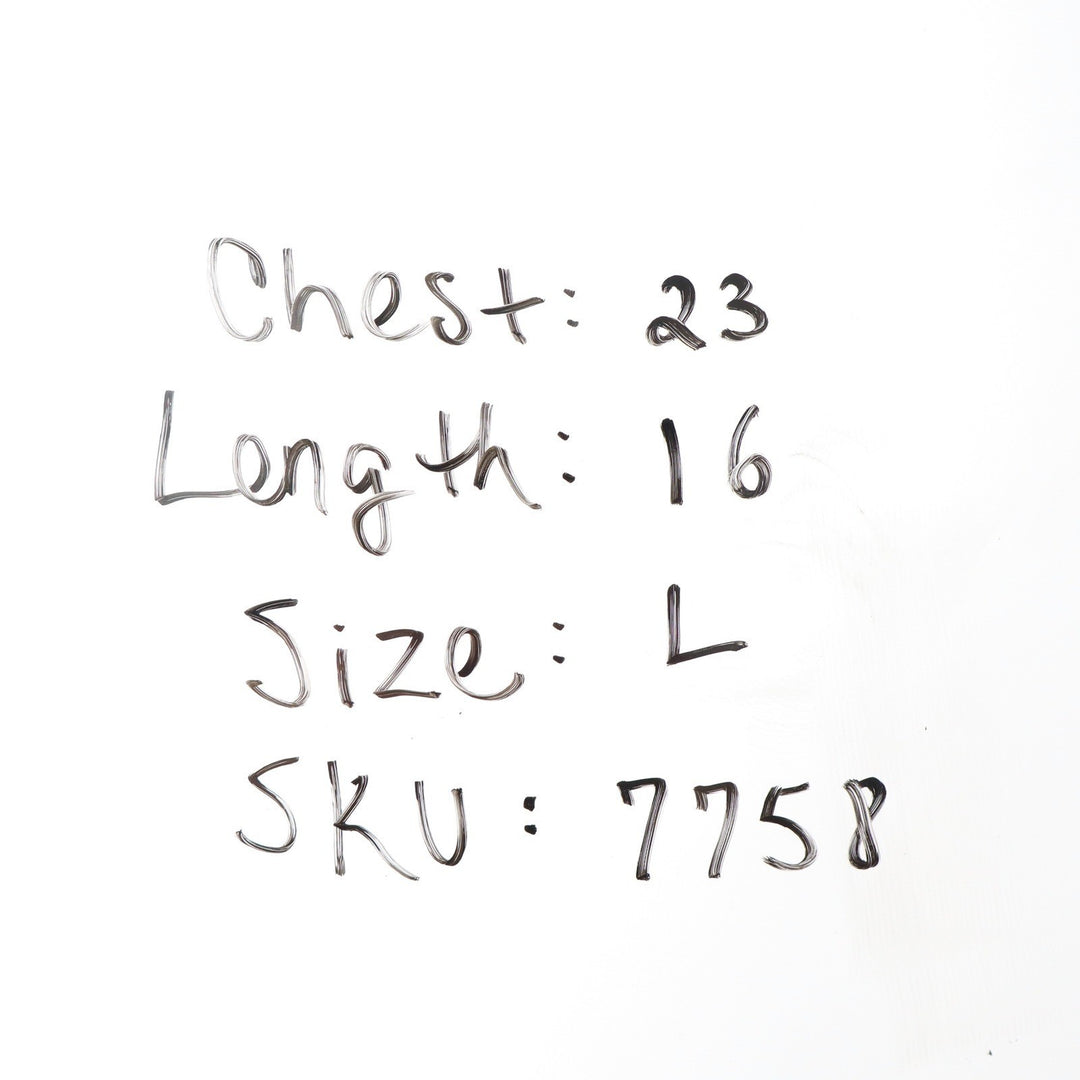 Chest: 23
Length: 16
Size: L
SKU: 7758